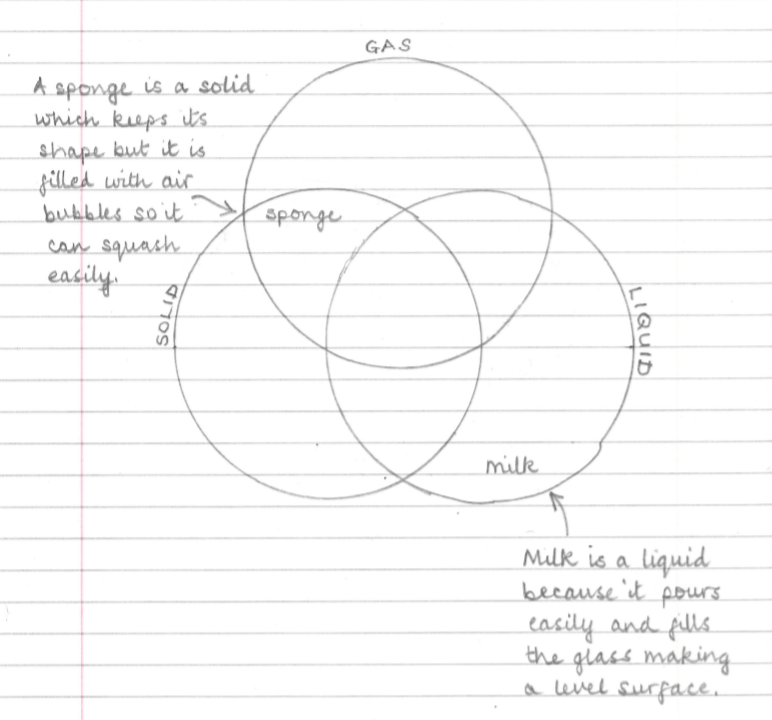 GAS
A sponge is a solid
which keeps its
shape but it is
filled with air
bubbles so it
can squash
easily.
sponge
SOLID
LIQUID
milk
Milk is a liquid
because it pours
easily and fills
the glass making
a level surface.